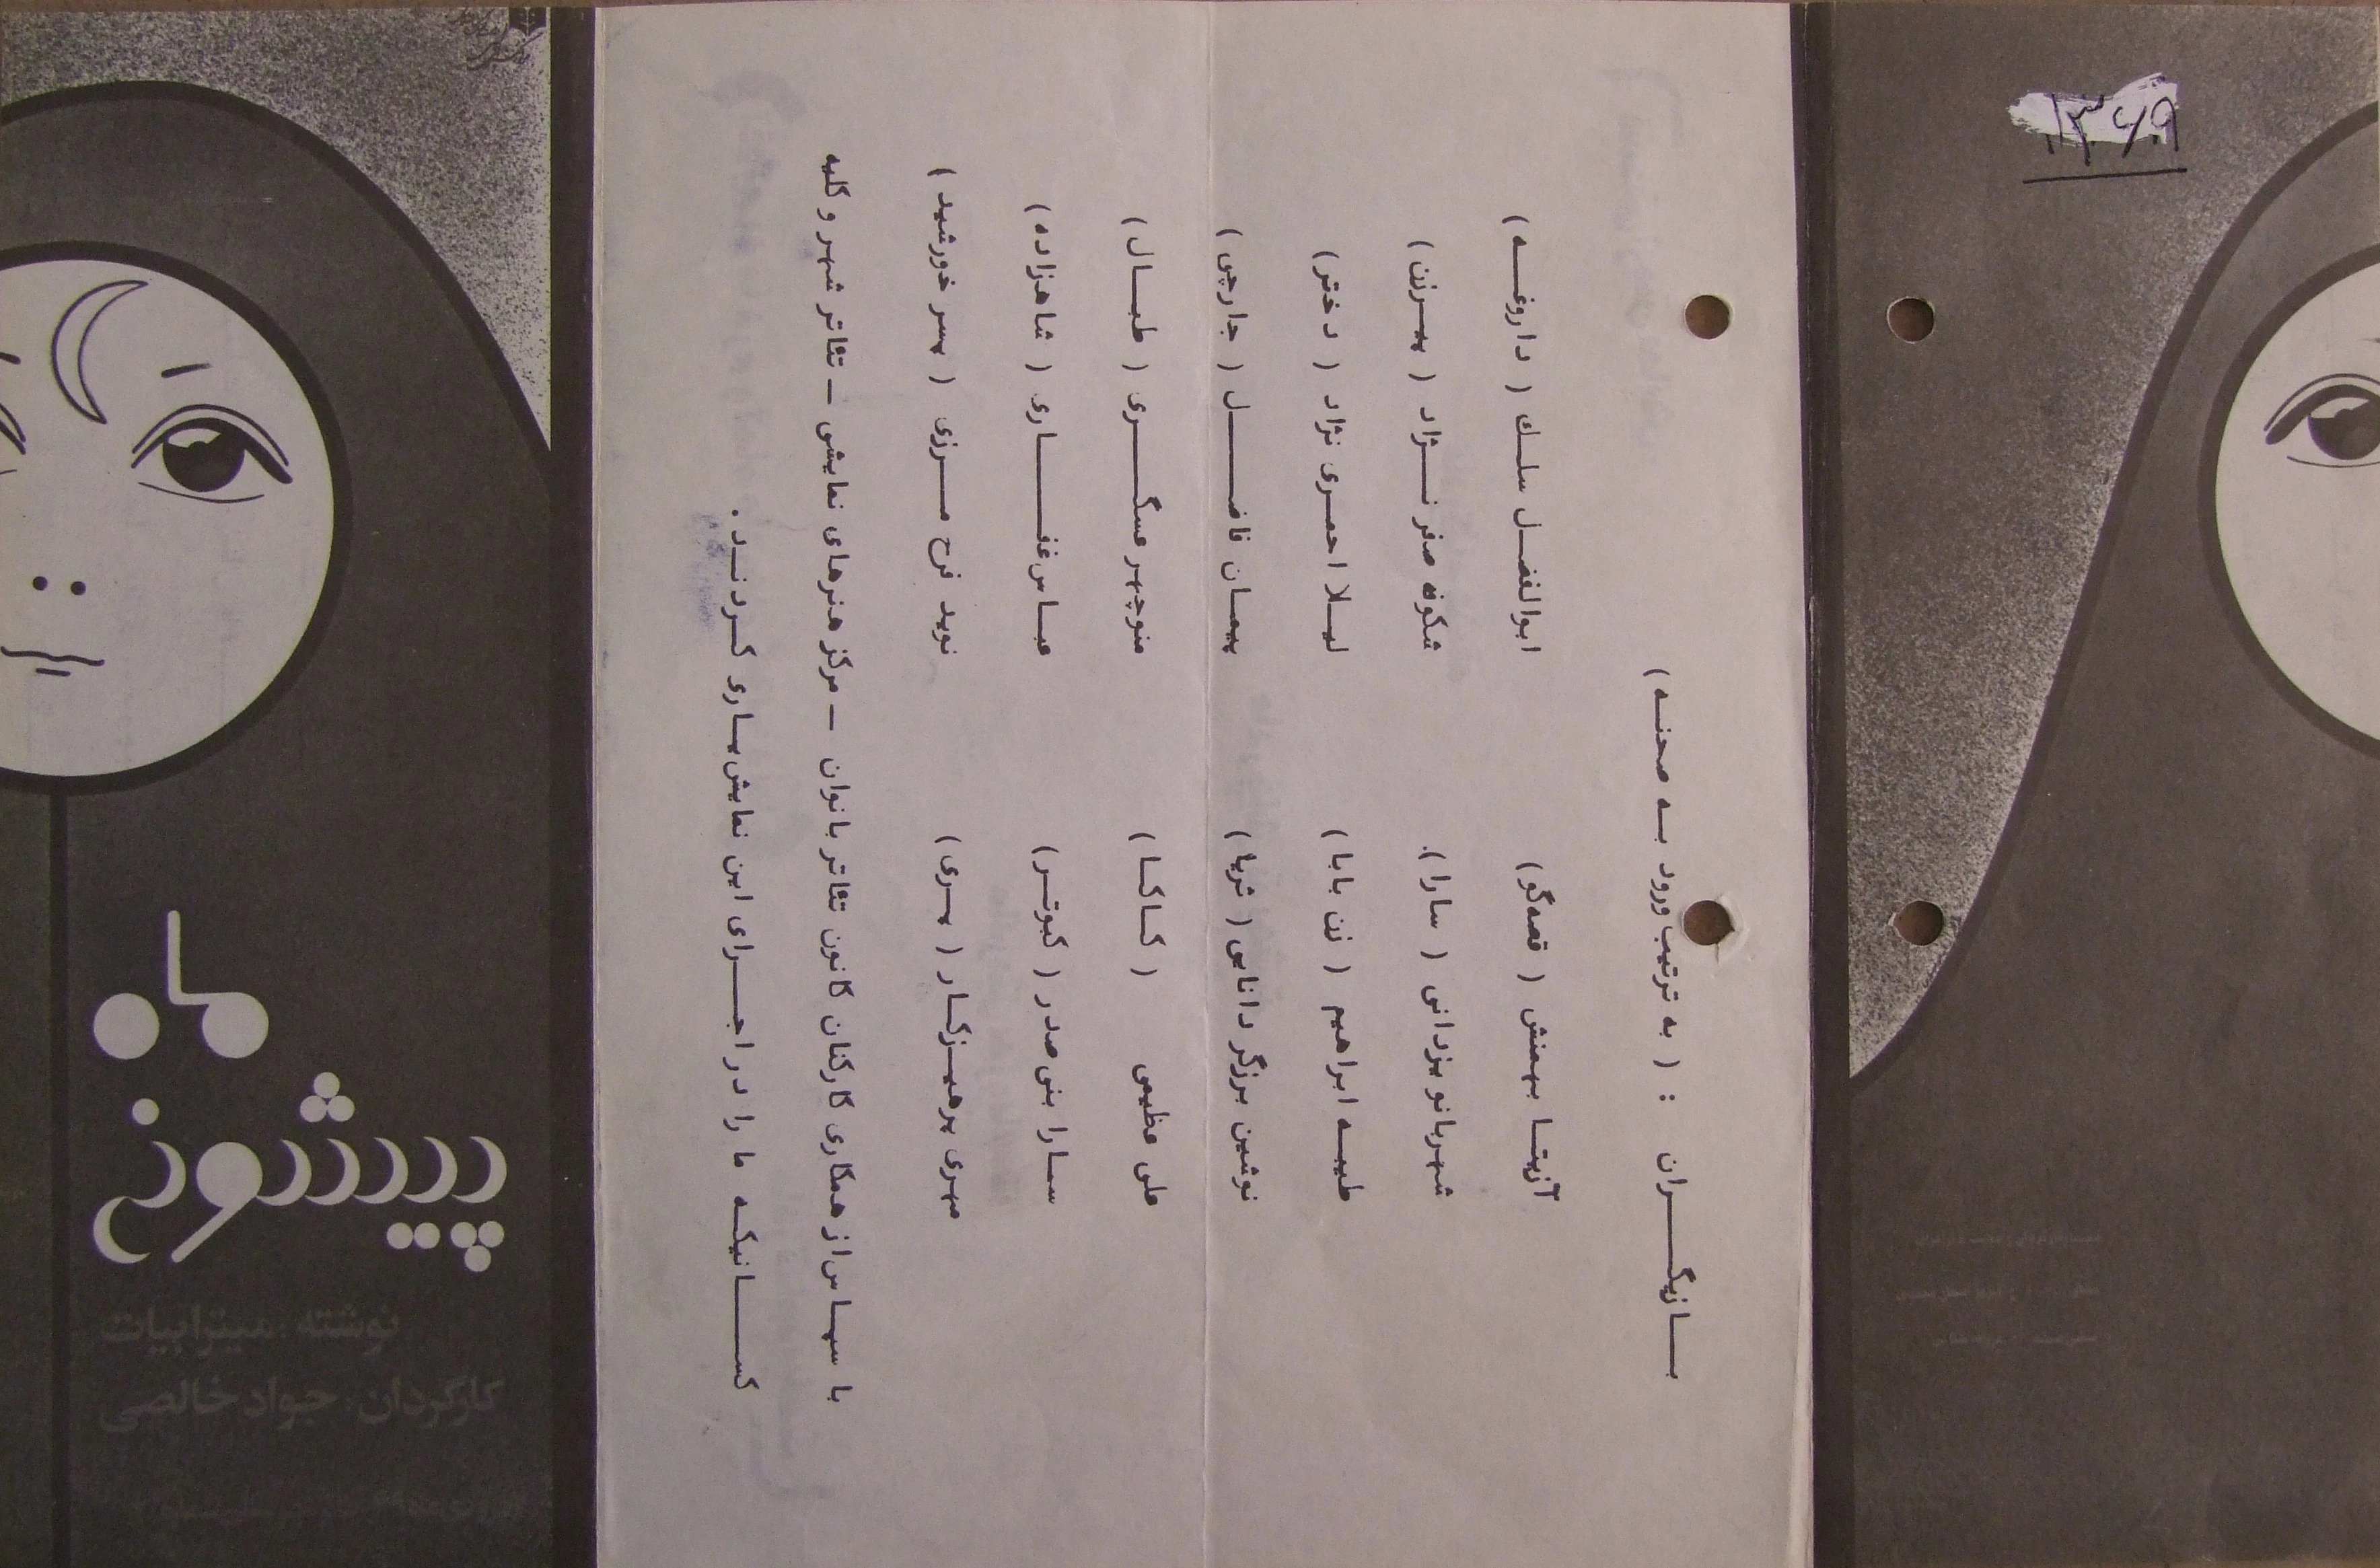 ۱۳۶۹
ماه
پیشونی
نوشته: میترا بیات
کارگردان: جواد خالصی
بازیگران : ( به ترتیب ورود به صحنه )
آزیتا بهمنش ( قصه‌گو ) ابوالفضل سلک ( داروغه )
شهربانو یزدانی ( سارا ). شکوفه صفر نژاد ( پیرزن )
طیبه ابراهیم ( زن بابا ) لیلا احمری نژاد ( دختر )
نوشین برزگر دانایی ( ثریا ) پیمان فاضل ( جارچی )
علی عظیمی ( کاکا ) منوچهر عسگری ( طبال )
سارا بنی صدر ( کبوتر ) عباس غفاری ( شاهزاده )
مهری پرهیزکار ( پری ) نوید فرح مرزی ( پسر خورشید )
با سپاس از همکاری کارکنان کانون تئاتر بانوان – مرکز هنرهای نمایشی – تئاتر شهر و کلیه
کسانیکه ما را در اجرای این نمایش یاری کردند .